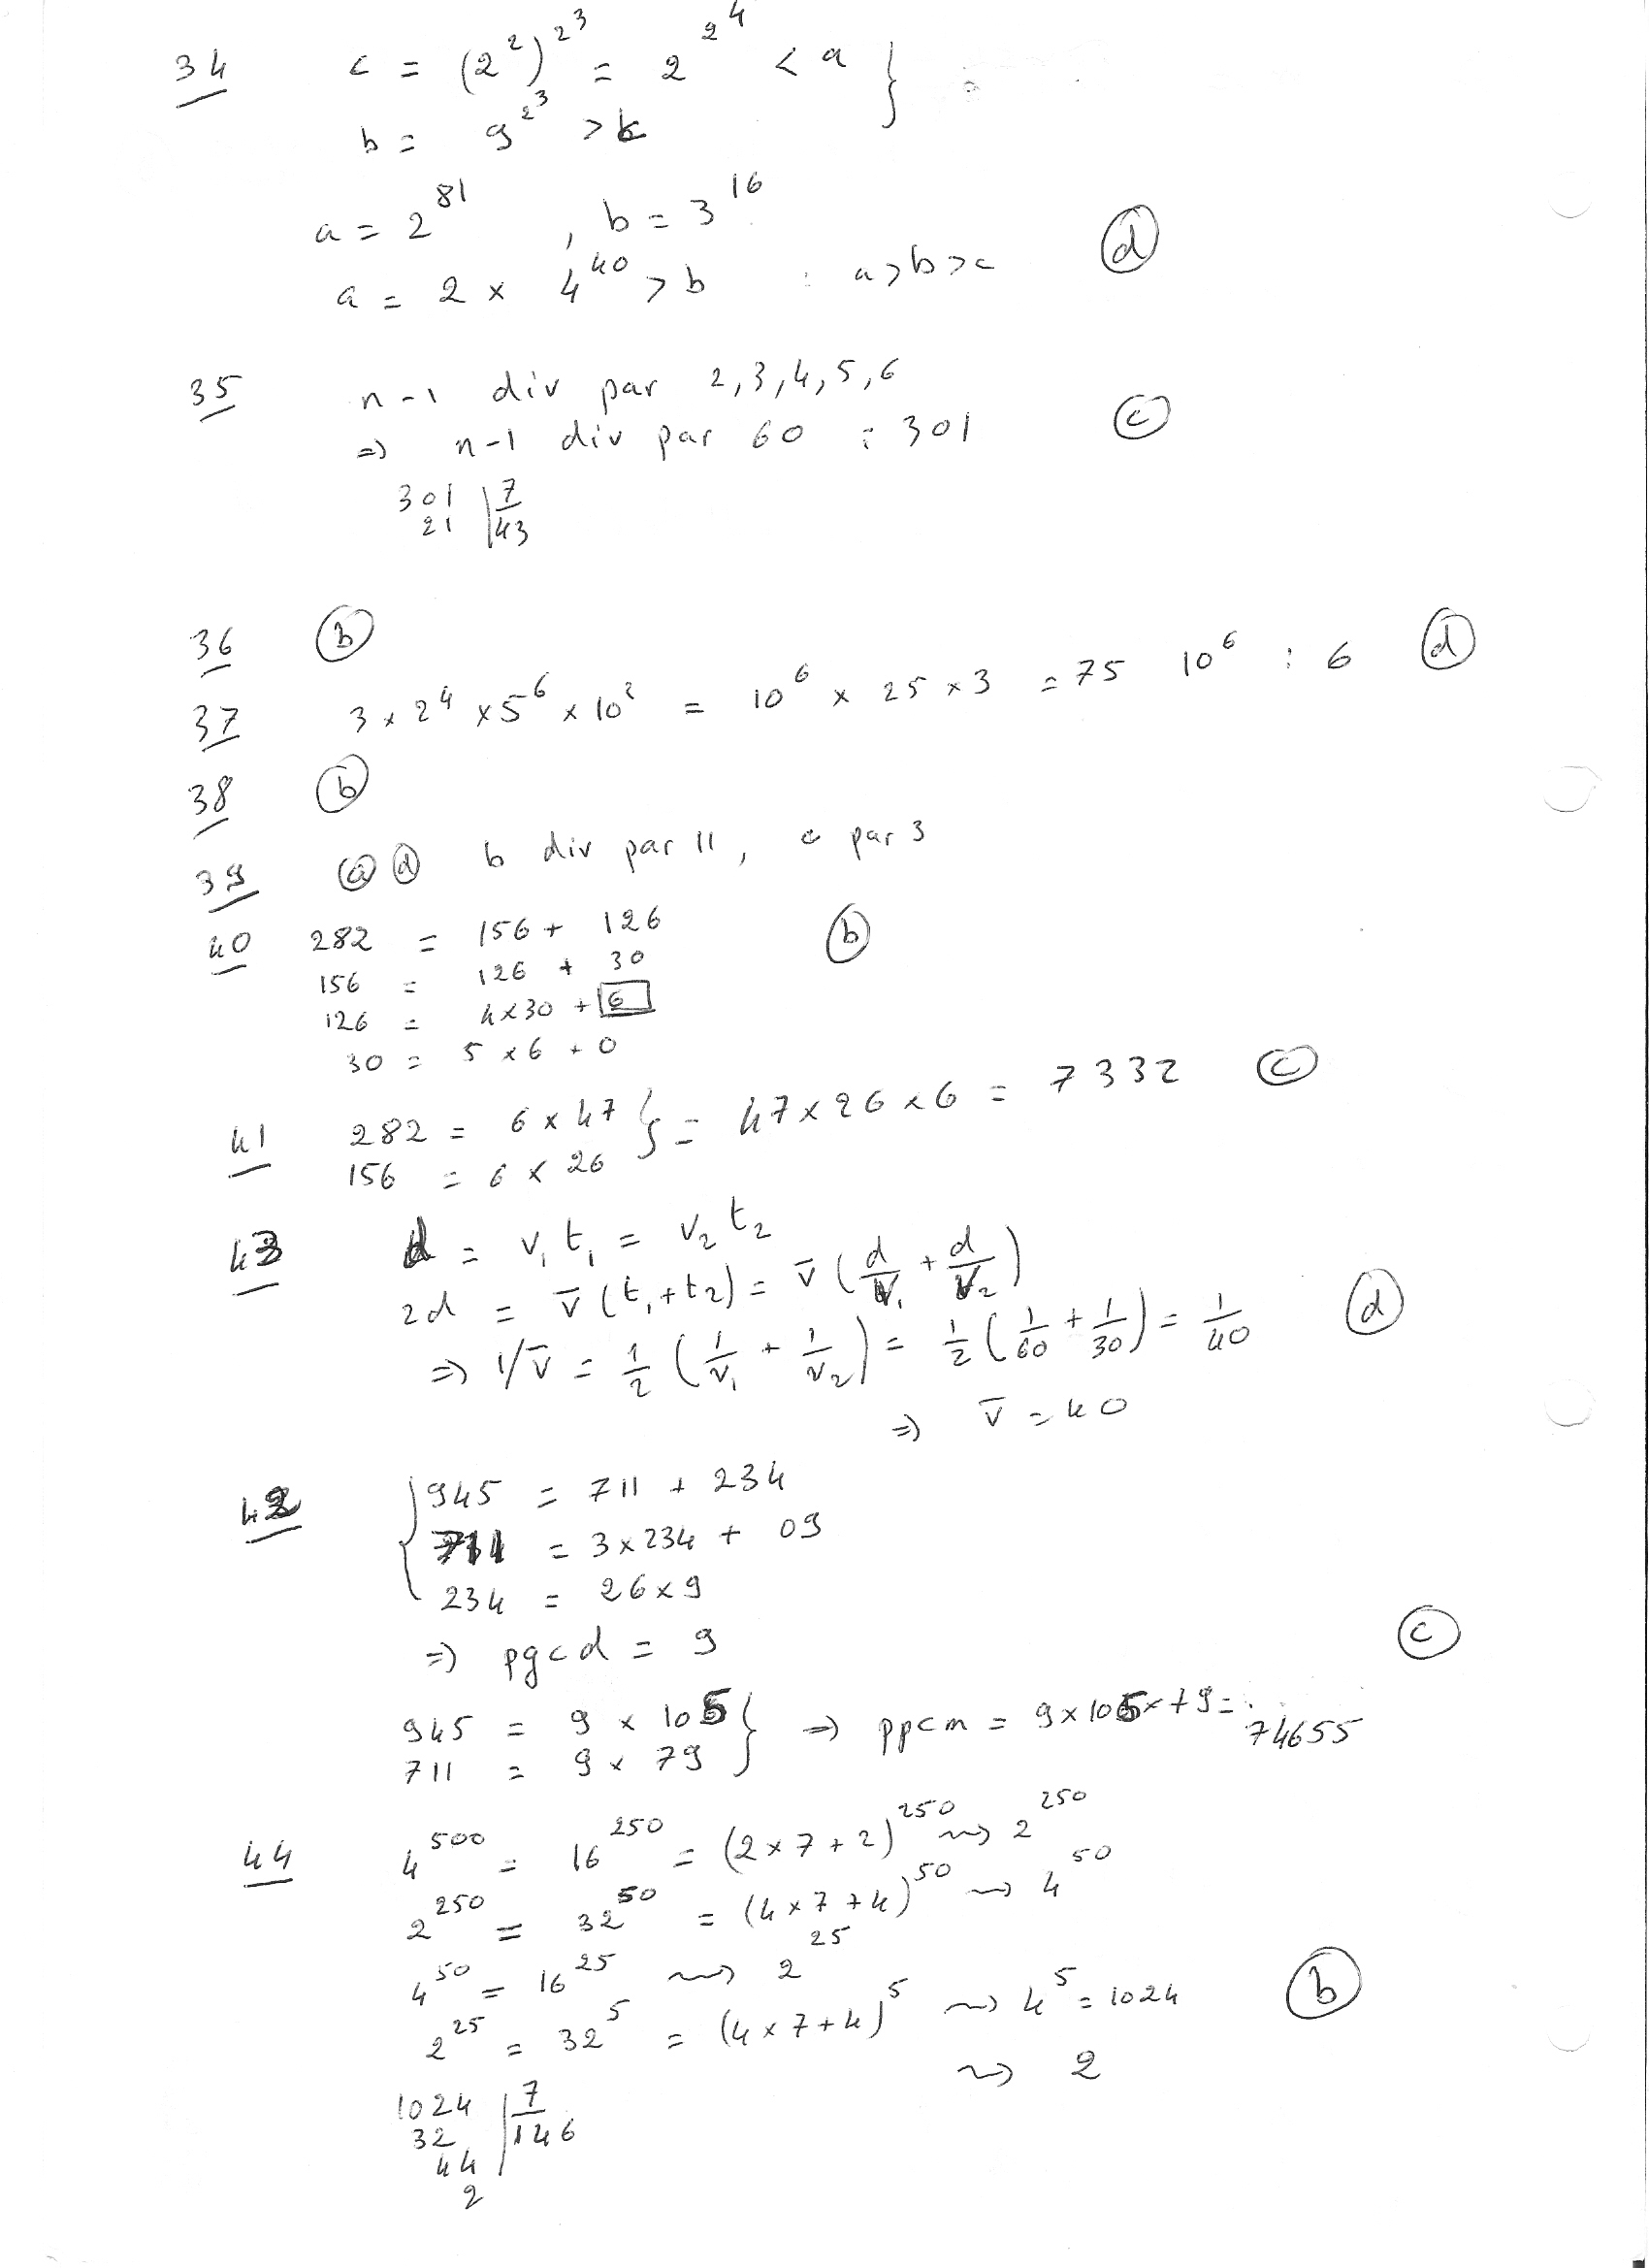 34 c = (2^2)^2^3 = 2^2^4 < a }
b = 9^2^3 > c
a = 2^81 , b = 3^16
a = 2 x 4^40 > b : a > b > c (d)
35 n-1 div par 2,3,4,5,6
=> n-1 div par 60 : 301 (c)
301 | 7
21 | 43
36 (b)
37 3 x 2^4 x 5^6 x 10^2 = 10^6 x 25 x 3 = 75 10^6 : 6 (d)
38 (b)
39 (a) (d) b div par 11, c par 3
40 282 = 156 + 126 (b)
156 = 126 + 30
126 = 4x30 + 6
30 = 5 x 6 + 0
41 282 = 6 x 47 } = 47 x 26 x 6 = 7332 (c)
156 = 6 x 26
43 d = v1 t1 = v2 t2
2d = v̄ (t1 + t2) = v̄ (d/V1 + d/V2)
=> 1/v̄ = 1/2 (1/v1 + 1/v2) = 1/2 (1/60 + 1/30) = 1/40 (d)
=> v̄ = 40
42 { 945 = 711 + 234
711 = 3 x 234 + 09
234 = 26 x 9
=> pgcd = 9 (c)
945 = 9 x 105 } => ppcm = 9 x 105 x 79 = 74655
711 = 9 x 79
44 4^500 = 16^250 = (2 x 7 + 2)^250 ~> 2^250
2^250 = 32^50 = (4 x 7 + 4)^50 ~> 4^50
4^50 = 16^25 ~> 2^25
2^25 = 32^5 = (4 x 7 + 4)^5 ~> 4^5 = 1024 (b)
~> 2
1024 | 7
32 | 146
44
2